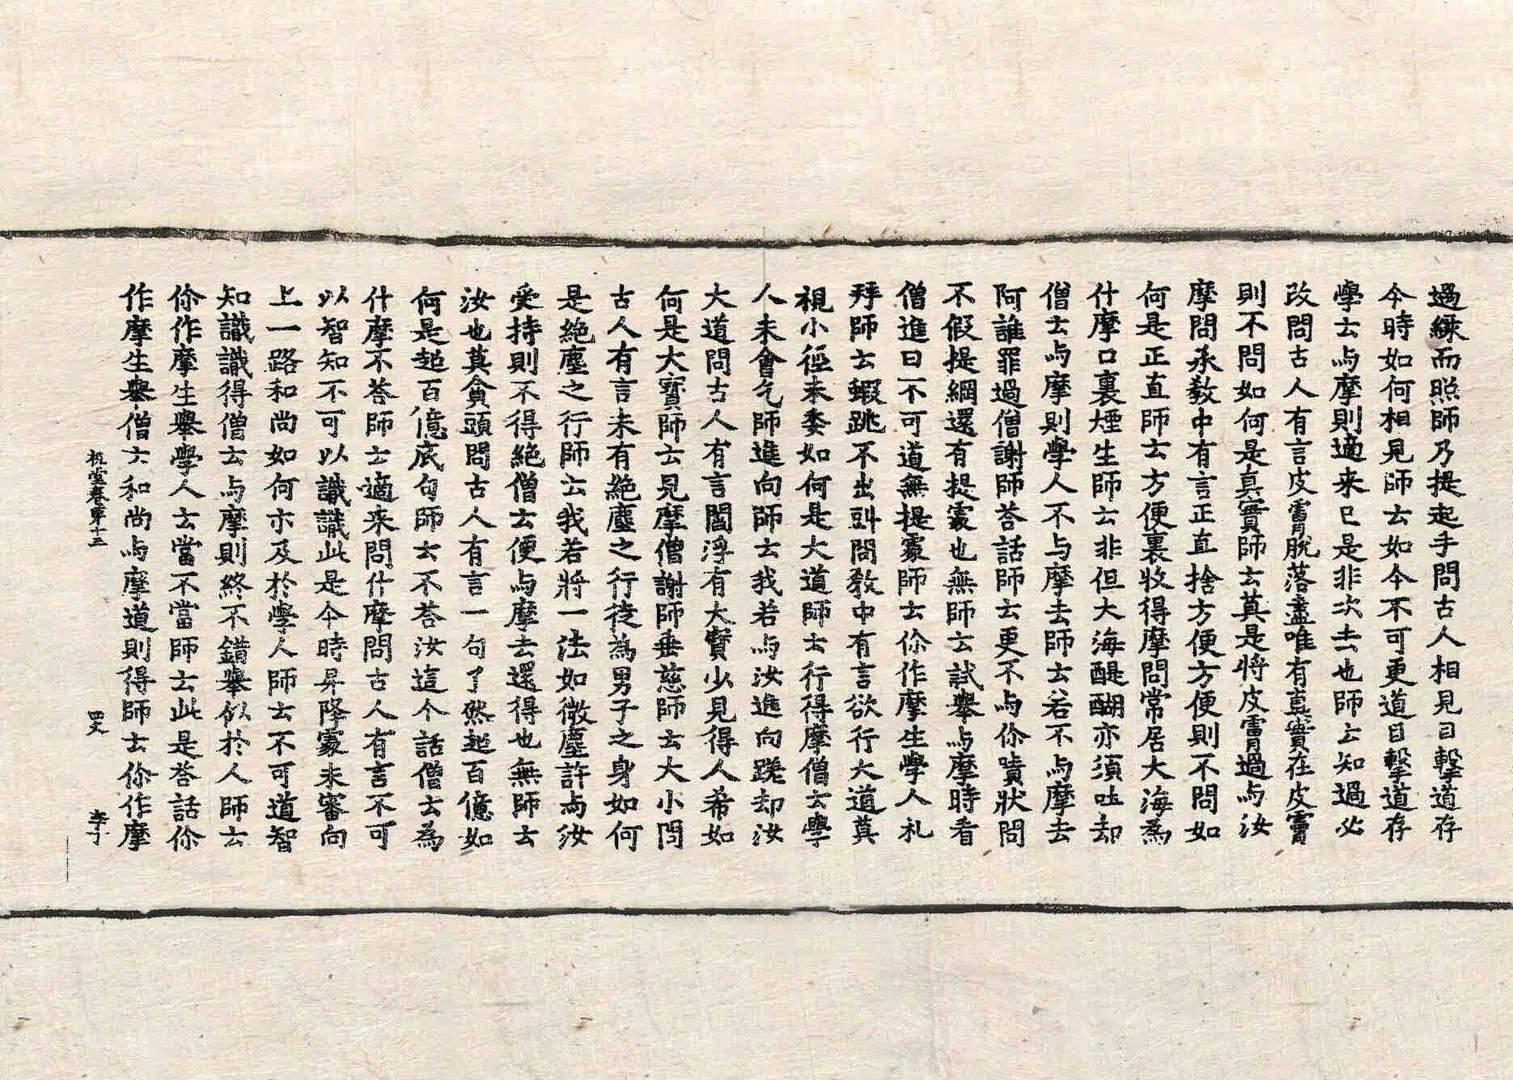 過綠而照師乃提起手問古人相見目擊道存
今時如何相見師云如今不可更道目擊道存
學士与摩則適來已是非次去也師云知過必
改問古人有言皮膚脫落盡唯有真實在皮膚
則不問如何是真實師云莫是將皮膚過与汝
摩問承教中有言正直捨方便方便則不問如
何是正直師云方便裏收得摩問常居大海為
什摩口裏煙生師云非但大海醍醐亦須吐却
僧云与摩則學人不与摩去師云若不与摩去
阿誰罪過僧謝師荅話師云更不与你責狀問
不假提綱還有提處也無師云試舉与摩時看
僧進曰不可道無提處師云你作摩生學人礼
拜師云蝦跳不出㪷問教中有言欲行大道莫
視小徑未委如何是大道師云行得摩僧云學
人未會乞師進向師云我若与汝進向蹉却汝
大道問古人有言閻浮有大寶少見得人希如
何是大寶師云見摩僧謝師垂慈師云大小問
古人有言未有絕塵之行徒為男子之身如何
是絕塵之行師云我若將一法如微塵許与汝
受持則不得絕僧云便与摩去還得也無師云
汝也莫貪頭問古人有言一句了然超百億如
何是超百億底句師云不荅汝這个話僧云為
什摩不荅師云適來問什摩問古人有言不可
以智知不可以識識此是今時昇降處未審向
上一路和尚如何亦及於學人師云不可道智
知識識得僧云与摩則終不錯舉似於人師云
你作摩生舉學人云當不當師云此是荅話你
作摩生舉僧云和尚与摩道則得師云你作摩
祖堂卷第十三 四丈 李丁